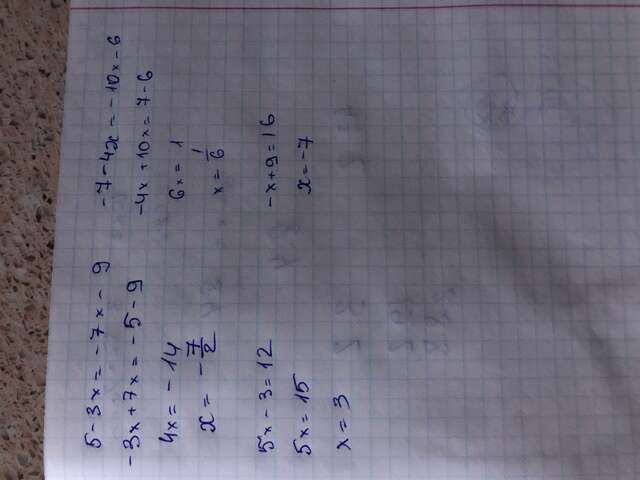 5-3x=-7x-9
-3x+7x=-5-9
4x=-14
x=-7/2
5x-3=12
5x=15
x=3
-7-4x=-10x-6
-4x+10x=7-6
6x=1
x=1/6
-x+9=16
x=-7